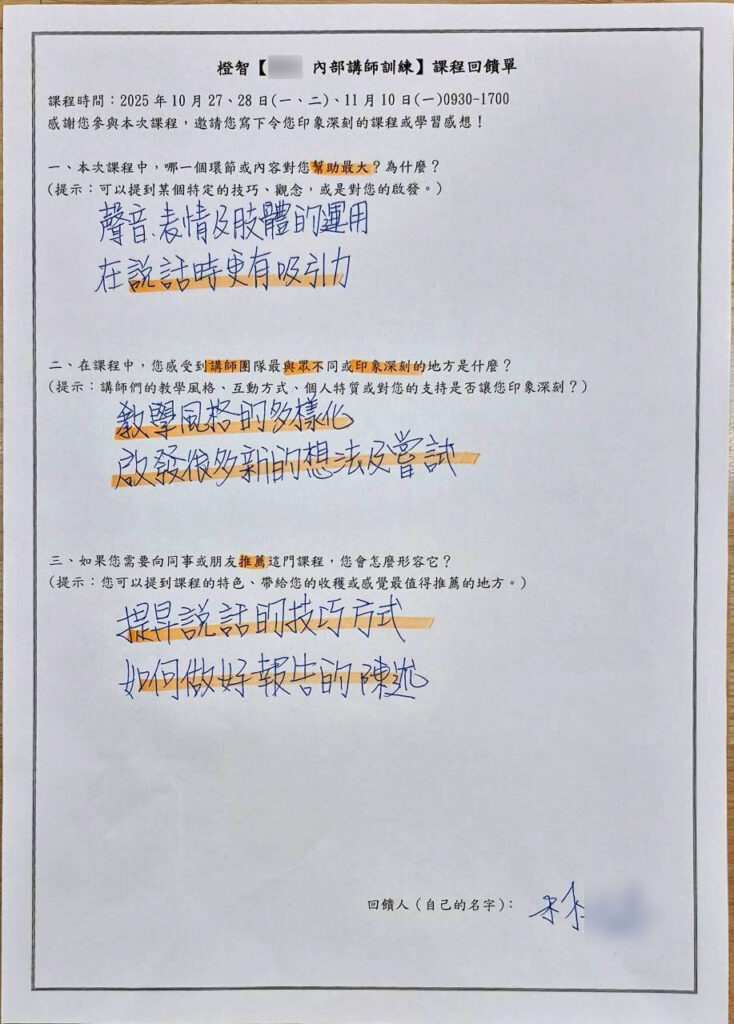 橙智【 內部講師訓練】課程回饋單
課程時間：2025 年 10 月 27、28 日(一、二)、11 月 10 日(一)0930-1700
感謝您參與本次課程，邀請您寫下令您印象深刻的課程或學習感想！
一、本次課程中，哪一個環節或內容對您幫助最大？為什麼？
(提示：可以提到某個特定的技巧、觀念，或是對您的啟發。)
聲音、表情及肢體的運用
在說話時更有吸引力
二、在課程中，您感受到講師團隊最與眾不同或印象深刻的地方是什麼？
(提示：講師們的教學風格、互動方式、個人特質或對您的支持是否讓您印象深刻？)
教學風格的多樣化
啟發很多新的想法及嘗試
三、如果您需要向同事或朋友推薦這門課程，您會怎麼形容它？
(提示：您可以提到課程的特色、帶給您的收穫或感覺最值得推薦的地方。)
提昇說話的技巧方式
如何做好報告的陳述
回饋人（自己的名字）：林